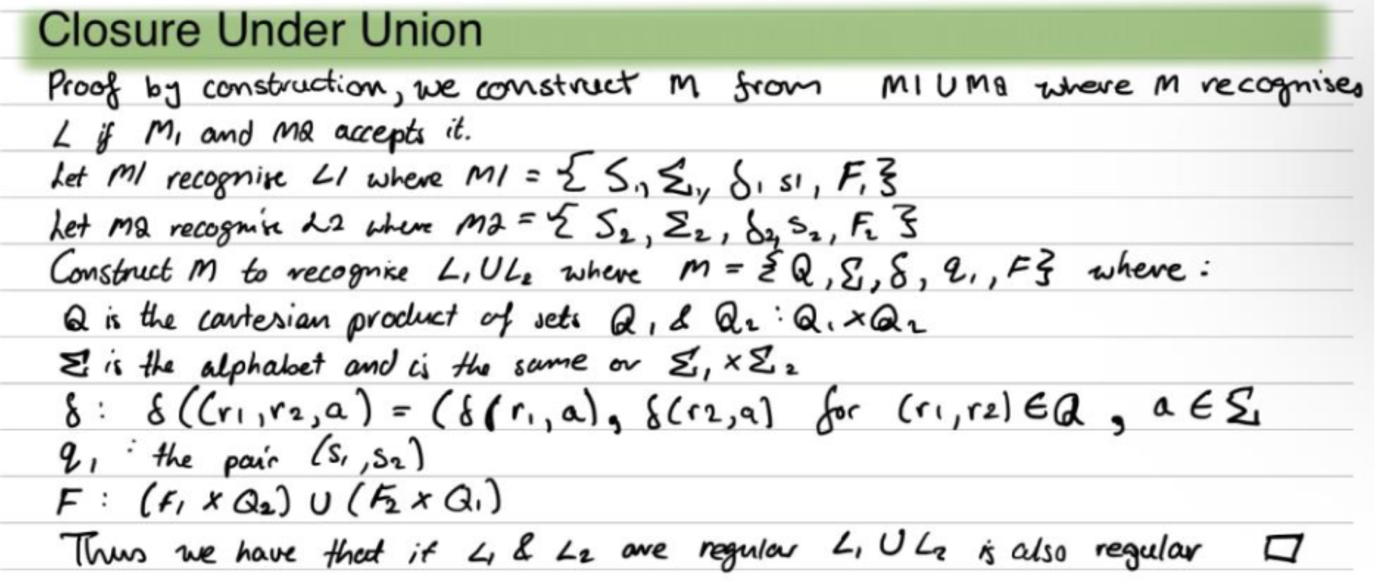 Closure Under Union
Proof by construction, we construct M from M1 U M2 where M recognises
L if M₁ and M2 accepts it.
Let M1 recognise L1 where M1 = { S₁, Σ₁, δ₁ s1, F₁ }
Let M2 recognise L2 where M2 = { S₂, Σ₂, δ₂, s₂, F₂ }
Construct M to recognise L₁ U L₂ where M = { Q, Σ, δ, q₁, F } where :
Q is the cartesian product of sets Q₁ & Q₂ : Q₁ × Q₂
Σ is the alphabet and is the same or Σ₁ × Σ₂
δ : δ((r1, r2, a) = (δ(r₁, a), δ(r2, a] for (r1, r2) ∈ Q, a ∈ Σ
q₁ : the pair (s₁, s₂)
F : (F₁ × Q₂) U (F₂ × Q₁)
Thus we have that if L₁ & L₂ are regular L₁ U L₂ is also regular □